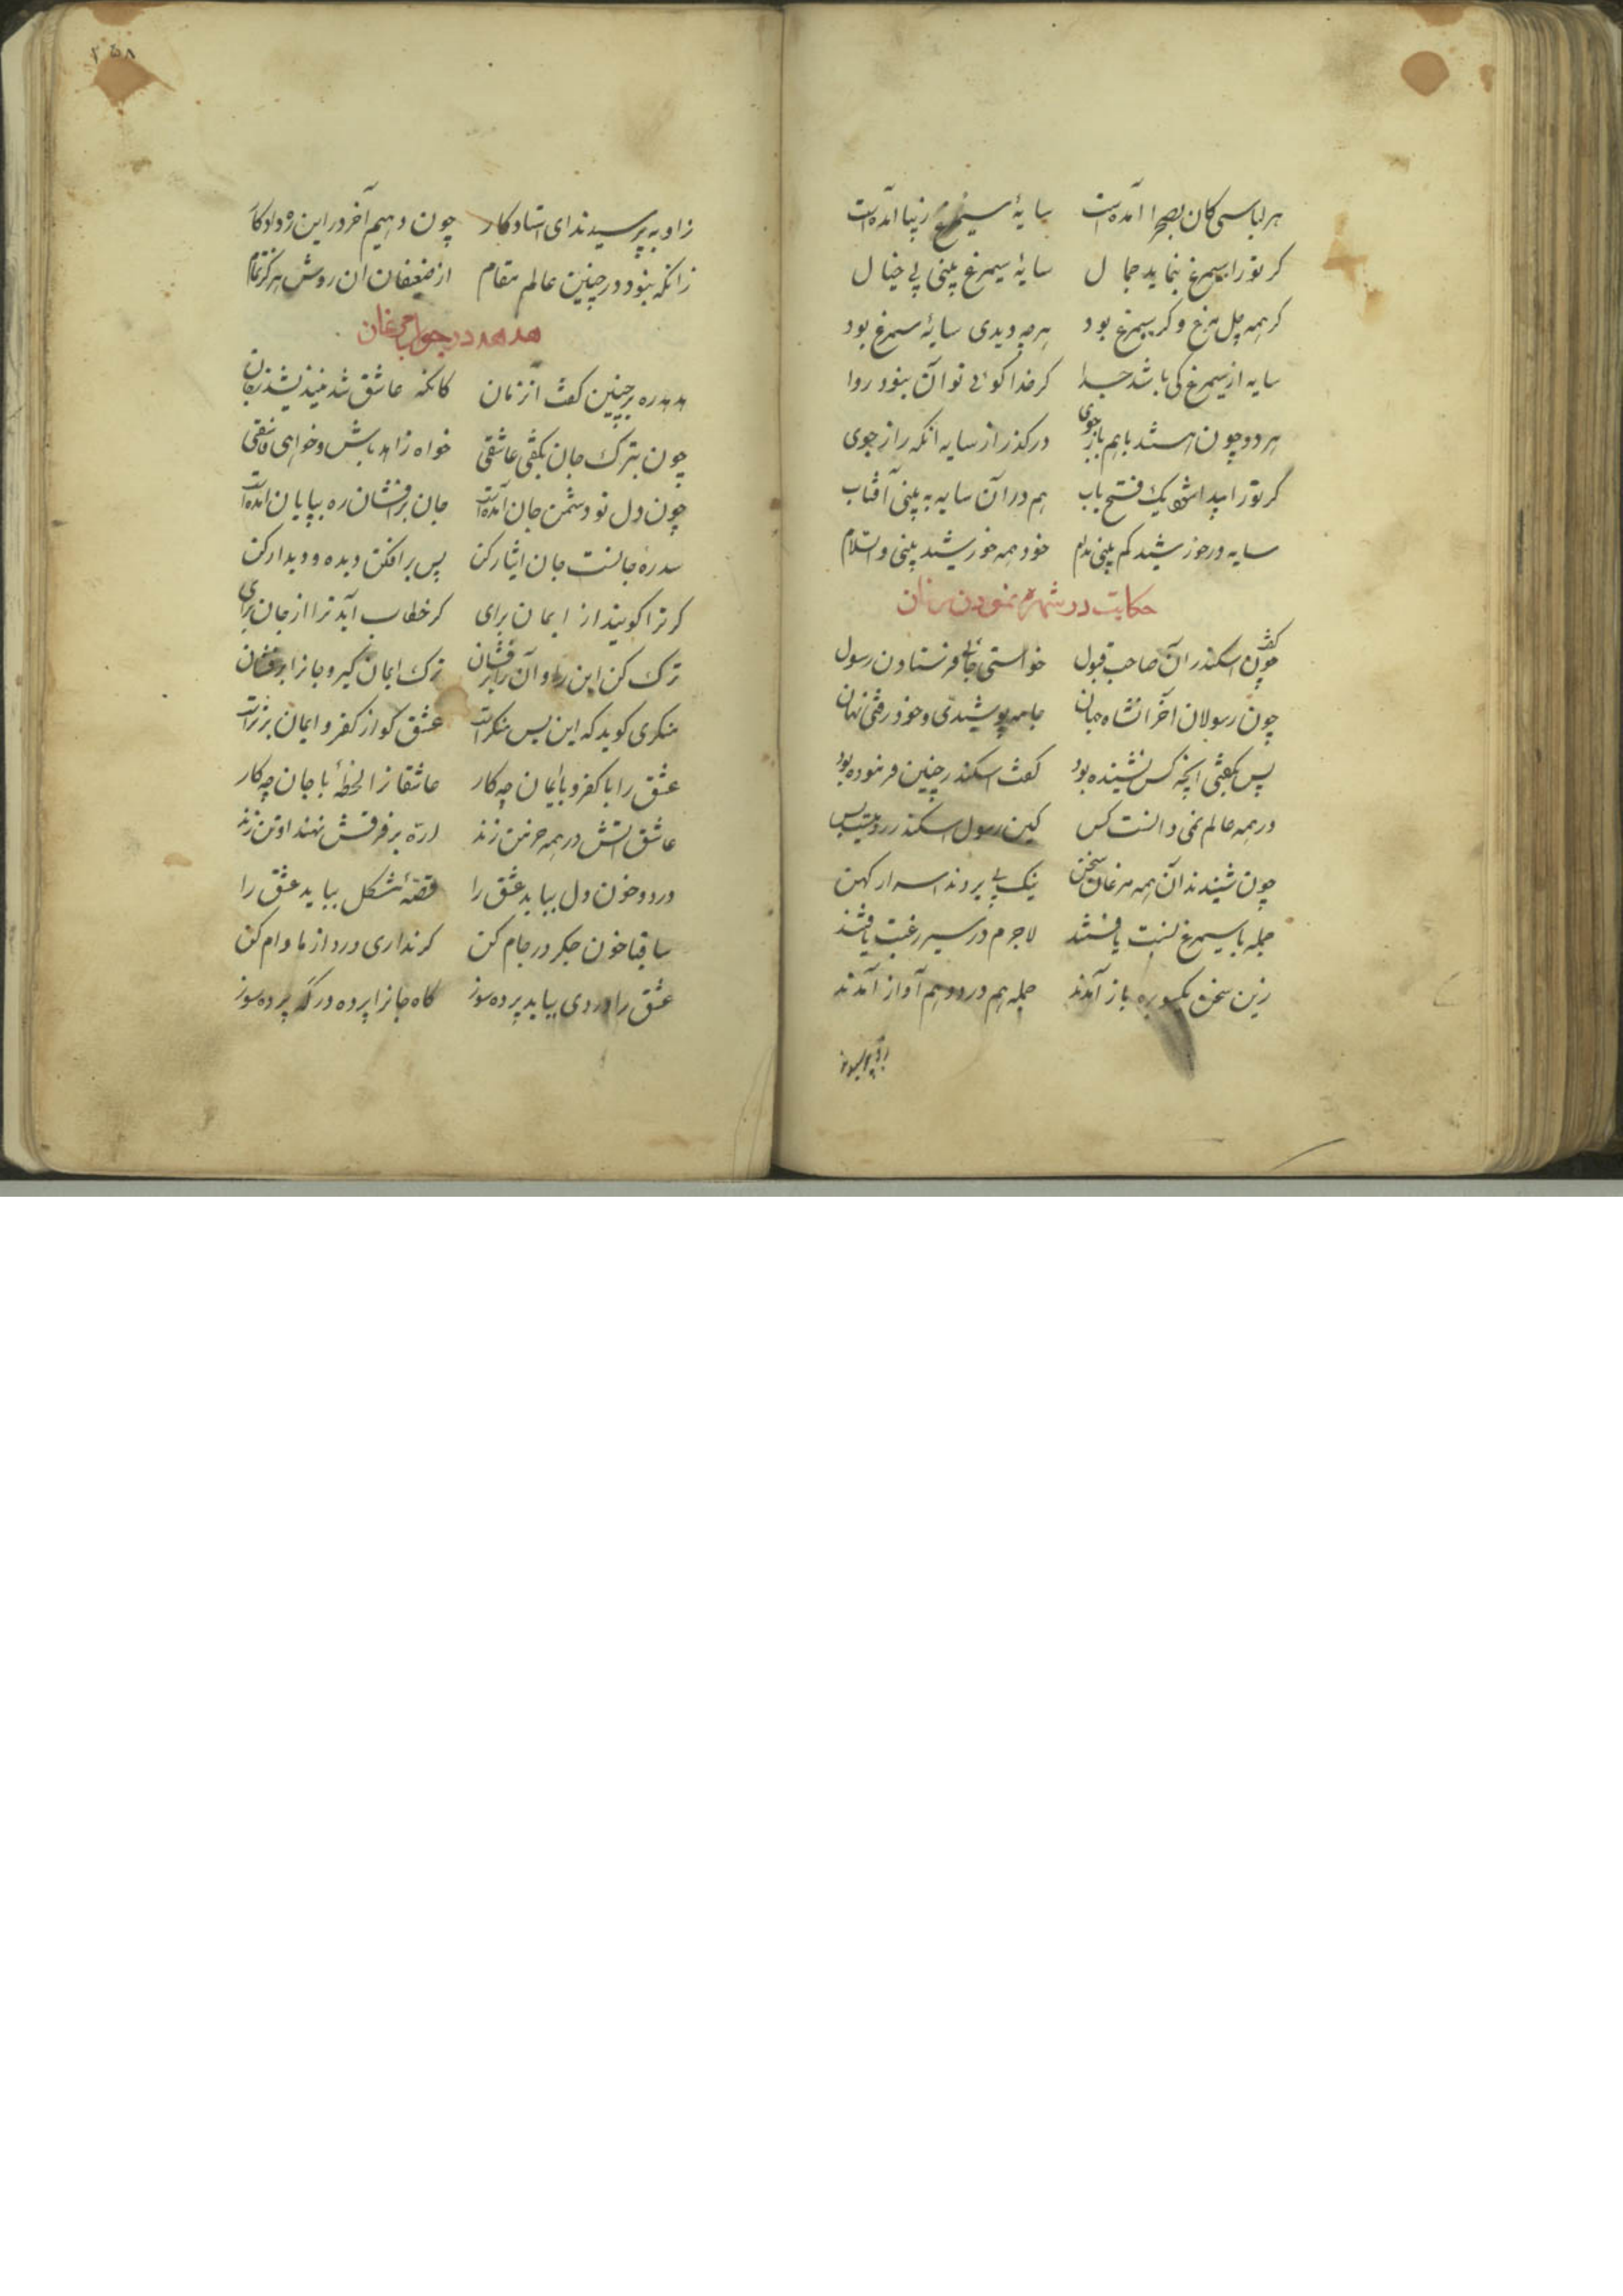 هر لباسی کان بصحرا آمده است سایهٔ سیمرغ زیبا آمده است
کر تورا سیمرغ بنماید جمال سایهٔ سیمرغ بینی بی خیال
کر همه چل مرغ و کر سیمرغ بود هرچه دیدی سایهٔ سیمرغ بود
سایه از سیمرغ کی باشد جدا کر خدا کوئی تو آن نبود روا
هر دو چون هستند باهم باز جوی در کذر از سایه انکه راز جوی
کر تورا پیدا شود یک فتح باب هم در آن سایه به بینی آفتاب
سایه در خورشید کم بینی مدام خود همه خورشید بینی والسلام
حکایت در نمودن مرغان
کفت چون اسکندر آن صاحب قبول خواستی جائی فرستادن رسول
چون رسولان آخر انشاه جهان جامه پوشیدی و خود رفتی نهان
پس بکفتی انچه کس نشنیده بود کفت اسکندر چنین فرموده بود
در همه عالم نمی دانست کس کین رسول اسکندر رومیست بس
چون شنیدند آن همه مرغان سخن نیک پی بردند اسرار کهن
جمله با سیمرغ نسبت یافتند لاجرم در سیر رغبت یافتند
زین سخن یکسو بره باز آمدند جمله هم درد و هم آواز آمدند
زو بپرسیدند
۲۵۸
زاو به پرسیدند ای استاد کار چون دهیم آخر در این ره داد کار
زانکه نبود در چنین عالم مقام از ضعیفان ان روش هرکز تمام
هدهد در جواب مرغان
هدهد رهبر چنین کفت انزمان کانکه عاشق شد نیندیشد ز جان
چون بترک جان بکفتی عاشقی خواه زاهد باش و خواهی فاسقی
چون دل تو دشمن جان آمده است جان برافشان ره بپایان آمده است
سد ره جانست جان ایثار کن پس برافکن دیده و دیدار کن
کر ترا کویند از ایمان برای کر خطاب آید ترا از جان برای
ترک کن این را و آن را برفشان ترک ایمان کیر و جانرا برفشان
منکری کوید که این بس منکر است عشق کو از کفر و ایمان برتر است
عشق را با کفر و با ایمان چه کار عاشقانرا لحظهٔ با جان چه کار
عاشق اتش در همه خرمن زند اره بر فرقش نهند او تن زند
درد و خون دل بباید عشق را قصهٔ مشکل بباید عشق را
ساقیا خون جکر در جام کن کر نداری درد از ما وام کن
عشق را دردی بباید پرده سوز کاه جانرا پرده در که پرده سوز